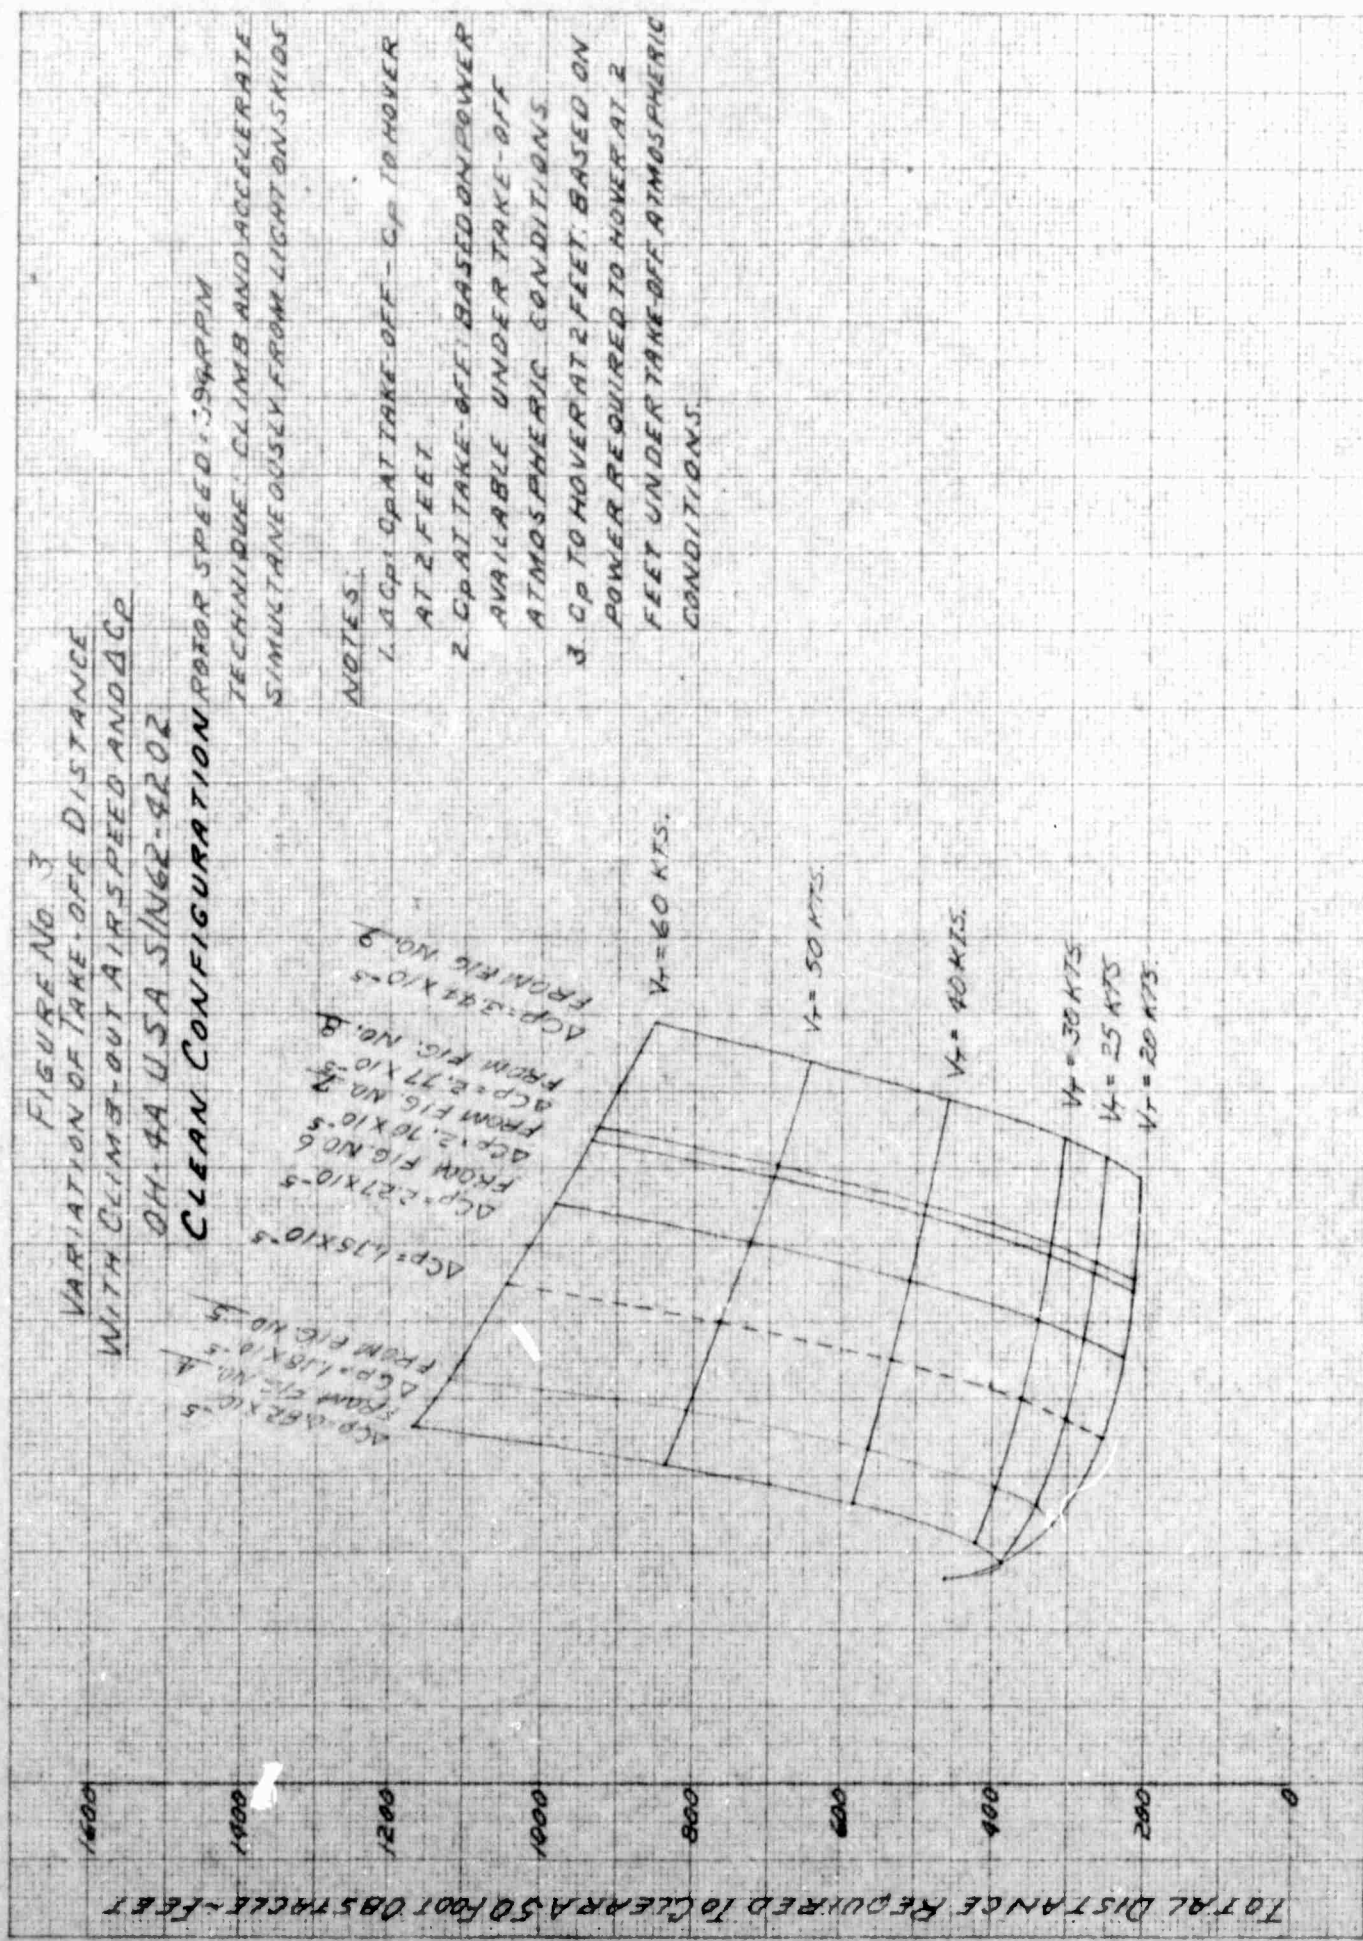 FIGURE NO. 3
VARIATION OF TAKE-OFF DISTANCE
WITH CLIMB-OUT AIRSPEED AND ΔCP
OH-4A USA S/N 62-4202
CLEAN CONFIGURATION
ROTOR SPEED = 394 RPM
TECHNIQUE: CLIMB AND ACCELERATE
SIMULTANEOUSLY FROM LIGHT ON SKIDS
NOTES:
1. ΔCp: Cp AT TAKE-OFF - Cp TO HOVER
AT 2 FEET
2. Cp AT TAKE-OFF: BASED ON POWER
AVAILABLE UNDER TAKE-OFF
ATMOSPHERIC CONDITIONS.
3. Cp TO HOVER AT 2 FEET: BASED ON
POWER REQUIRED TO HOVER AT 2
FEET UNDER TAKE-OFF ATMOSPHERIC
CONDITIONS.
ΔCp=0.82 X 10-5
FROM FIG. NO. 4
ΔCp=1.18 X 10-5
FROM FIG. NO. 5
ΔCp=1.75 X 10-5
ΔCp=2.27 X 10-5
FROM FIG. NO. 6
ΔCp=2.70 X 10-5
FROM FIG. NO. 7
ΔCp=2.77 X 10-5
FROM FIG. NO. 8
ΔCp=3.41 X 10-5
FROM FIG. NO. 9
VT = 60 KTS.
VT = 50 KTS.
VT = 40 KTS.
VT = 30 KTS
VT = 25 KTS
VT = 20 KTS.
TOTAL DISTANCE REQUIRED TO CLEAR A 50 FOOT OBSTACLE ~ FEET
1600
1400
1200
1000
800
600
400
200
0